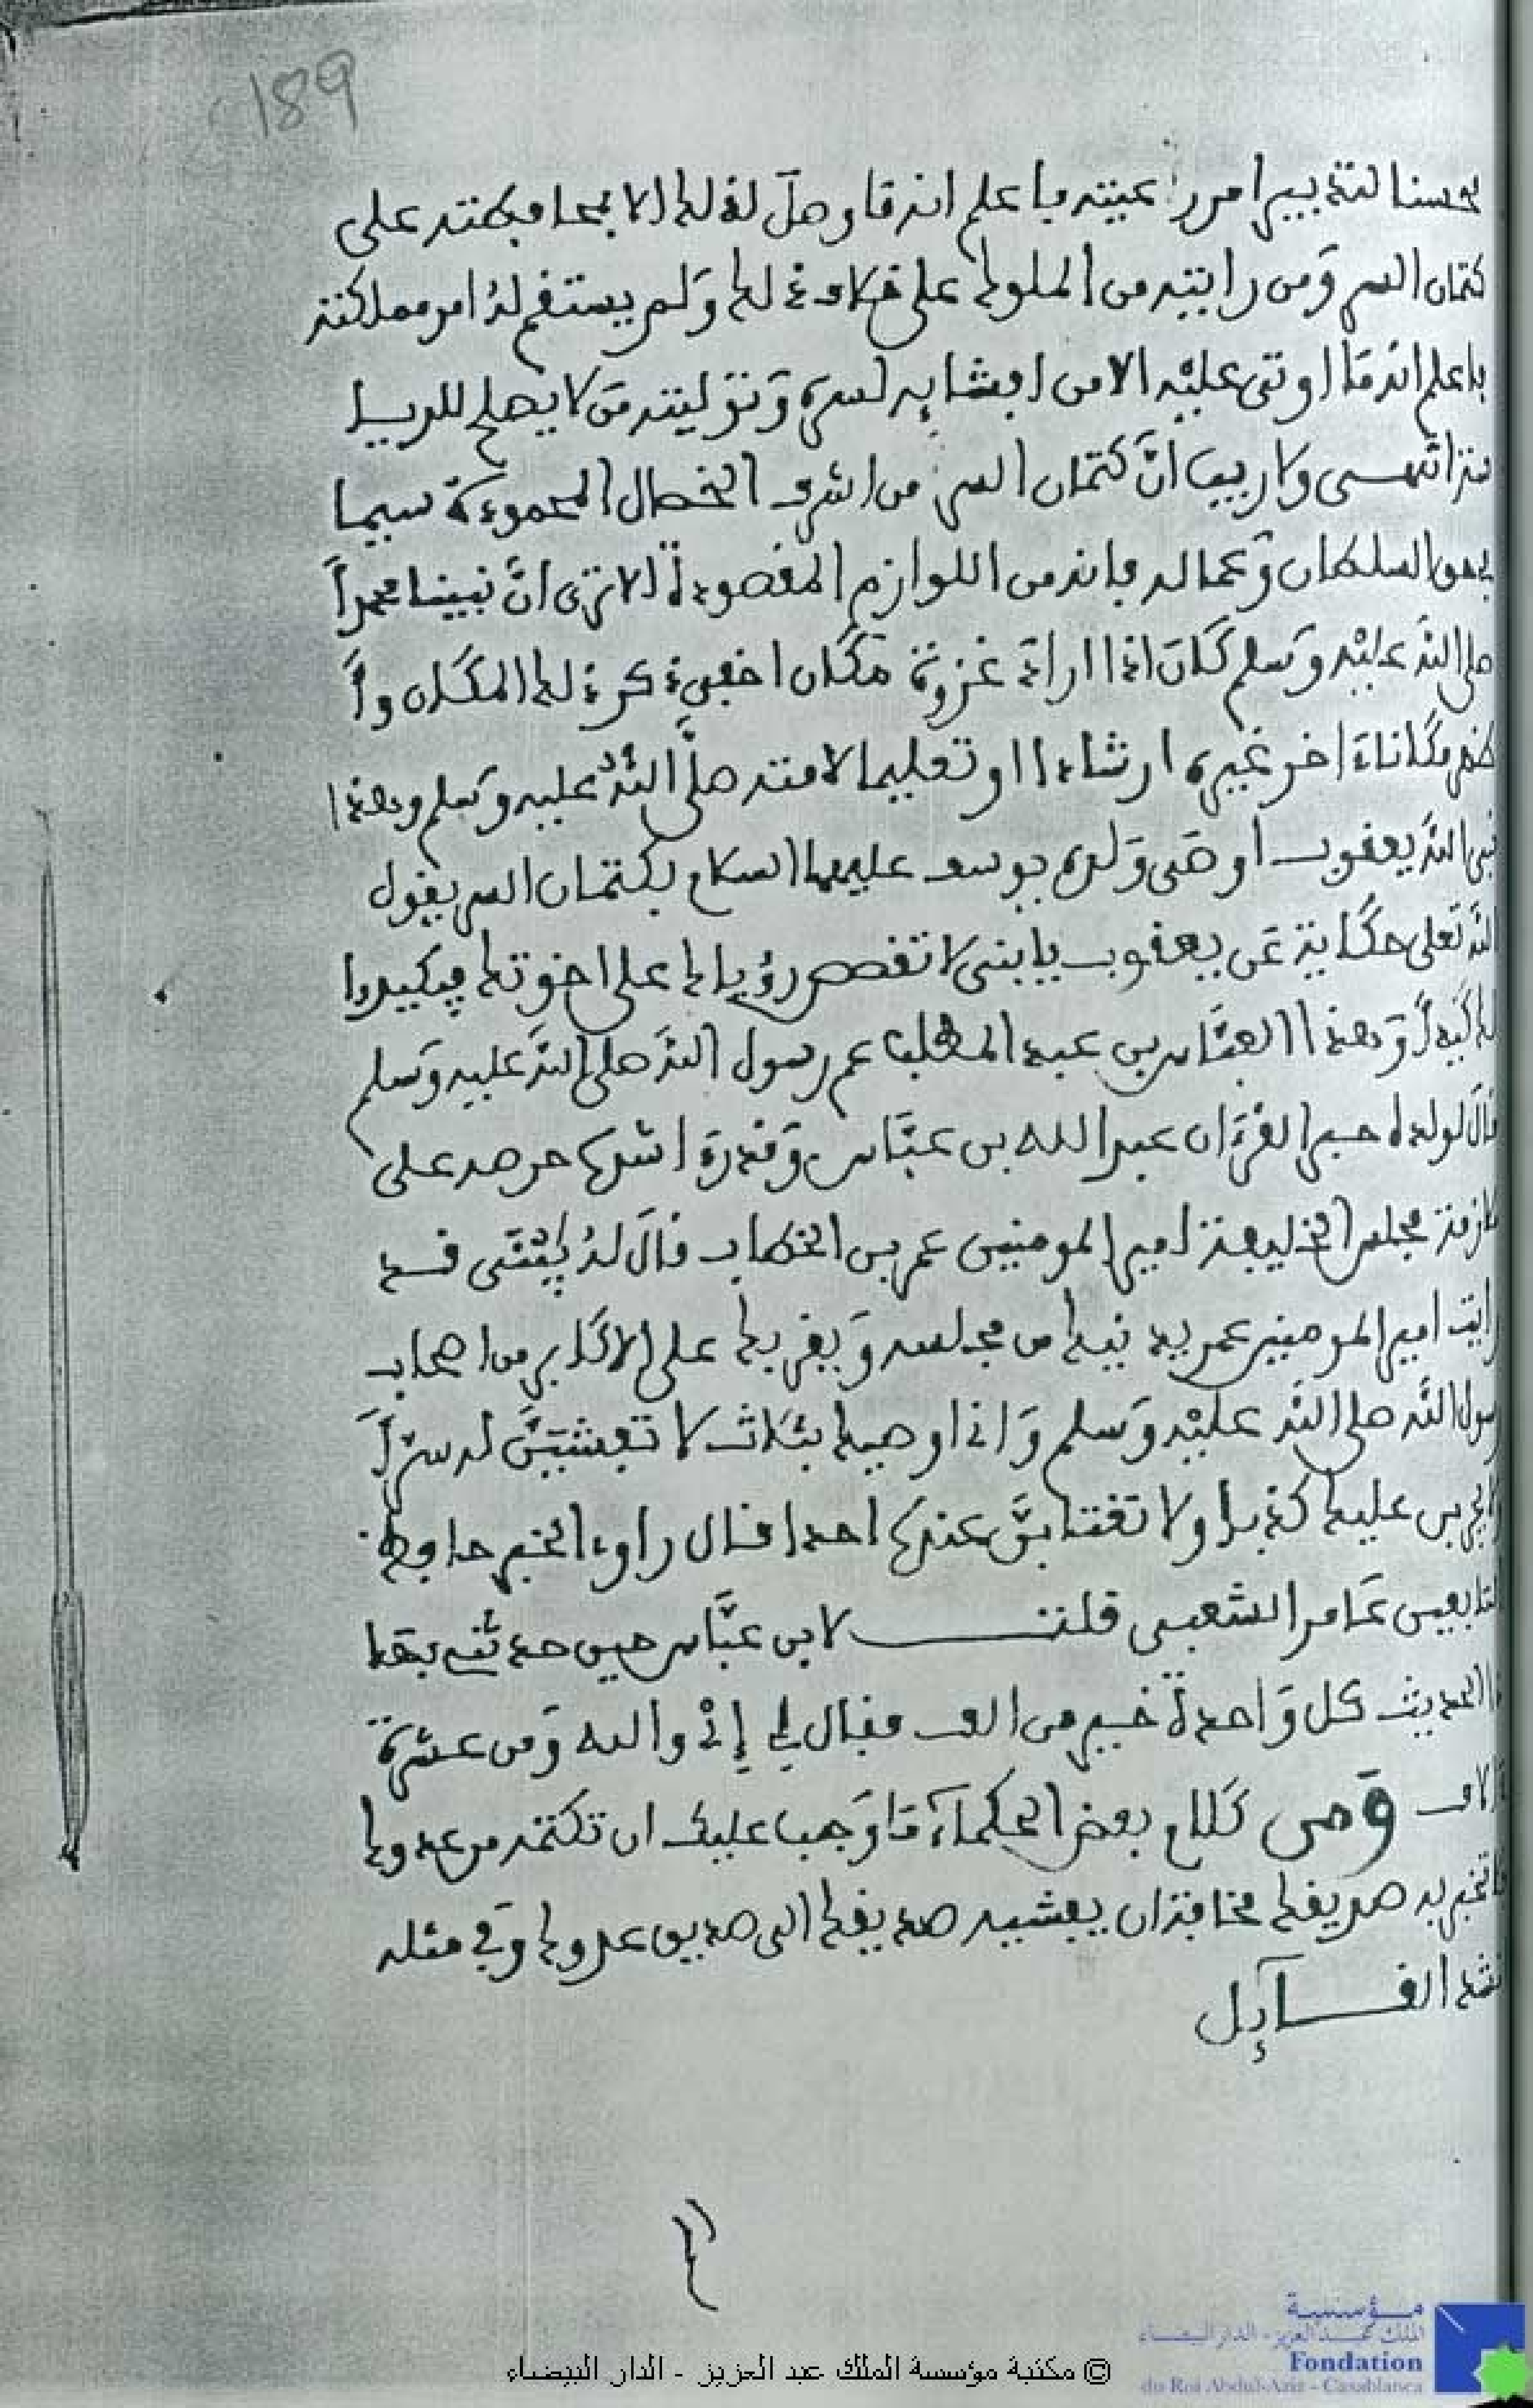 189
بحسن التدبير امور رعيته فاعلم انه ما وصل لذلك الا بمحافظته على
كتمان السر وَمن رايته من الملوك على خلاف ذلك وَلم يستقم لهُ امر مملكته
فاعلم انه مَا اوتى عليْه الا من افشايه لسره وَتوليته مَن لا يصلح للريا
سة انتهى ولا ريب انَّ كتمان السر من اشرف الخصال المحمودة سيما
فى حق السلطان وَعماله فانه من اللوازم المقصودة الا ترى انَّ نبينا محمداً
صلى اللهَ عليْه وَسلم كَان اذا ارادَ غزوة مَكَان اخفى ذكر ذلك المكَان وأ
ظهر مكَانا ءاخر غيره ارشادا او تعليما لامته صلَّى اللهُ عليه وَسلم وهذا
نبى اللهَ يعقوب اوصَى وَلده يوسف عليهما السلام بكتمان السر يقول
اللهَ تعلى حكَاية عَن يعقوب يابنى لا تقصص رؤياك على اخوتك فيكيدوا
لك كَيداً وَهذا العبَّاس بن عبد المطلب عم رسول اللهَ صلى اللهَ عليه وَسلم
قالَ لولده حبر القرءان عبد الله بن عبَّاس وَقد رَءا شدة حرصه على
ملازمة مجلس الخليفة امير المومنين عمر بن الخطاب قالَ لهُ يابُنَى قد
رايت امير المومنين عمر يدنيك من مجلسه وَيقربك على الاكَابر من اصحاب
رسول اللهَ صلى اللهَ عليْه وَسلم وَانا اوصيك بثلاث لا تفشيَنَّ له سراً وَ
لا يجربن عليك كذبا ولا تغتابنَّ عنده احدا قال راوى الخبر حافظ
التابعين عَامر الشعبى قلت لابن عبَّاس حين حدثنى بهَذا
الحديث كل وَاحدة خير من الف فقال لى إى والله وَمن عشرة
ءالاف وَمن كَلام بعض الحكماء مَا وَجب عليك ان تكتمه من عدوك
فلا تخبر به صديقك مخافة ان يفشيه صديقك الى صديق عدوك وَفى مثله
انشد القـــايل
© مكتبة مؤسسة الملك عبد العزيز - الدار البيضاء
مؤسسة
الملك عبد العزيز - الدار البيضاء
Fondation
du Roi Abdul-Aziz - Casablanca